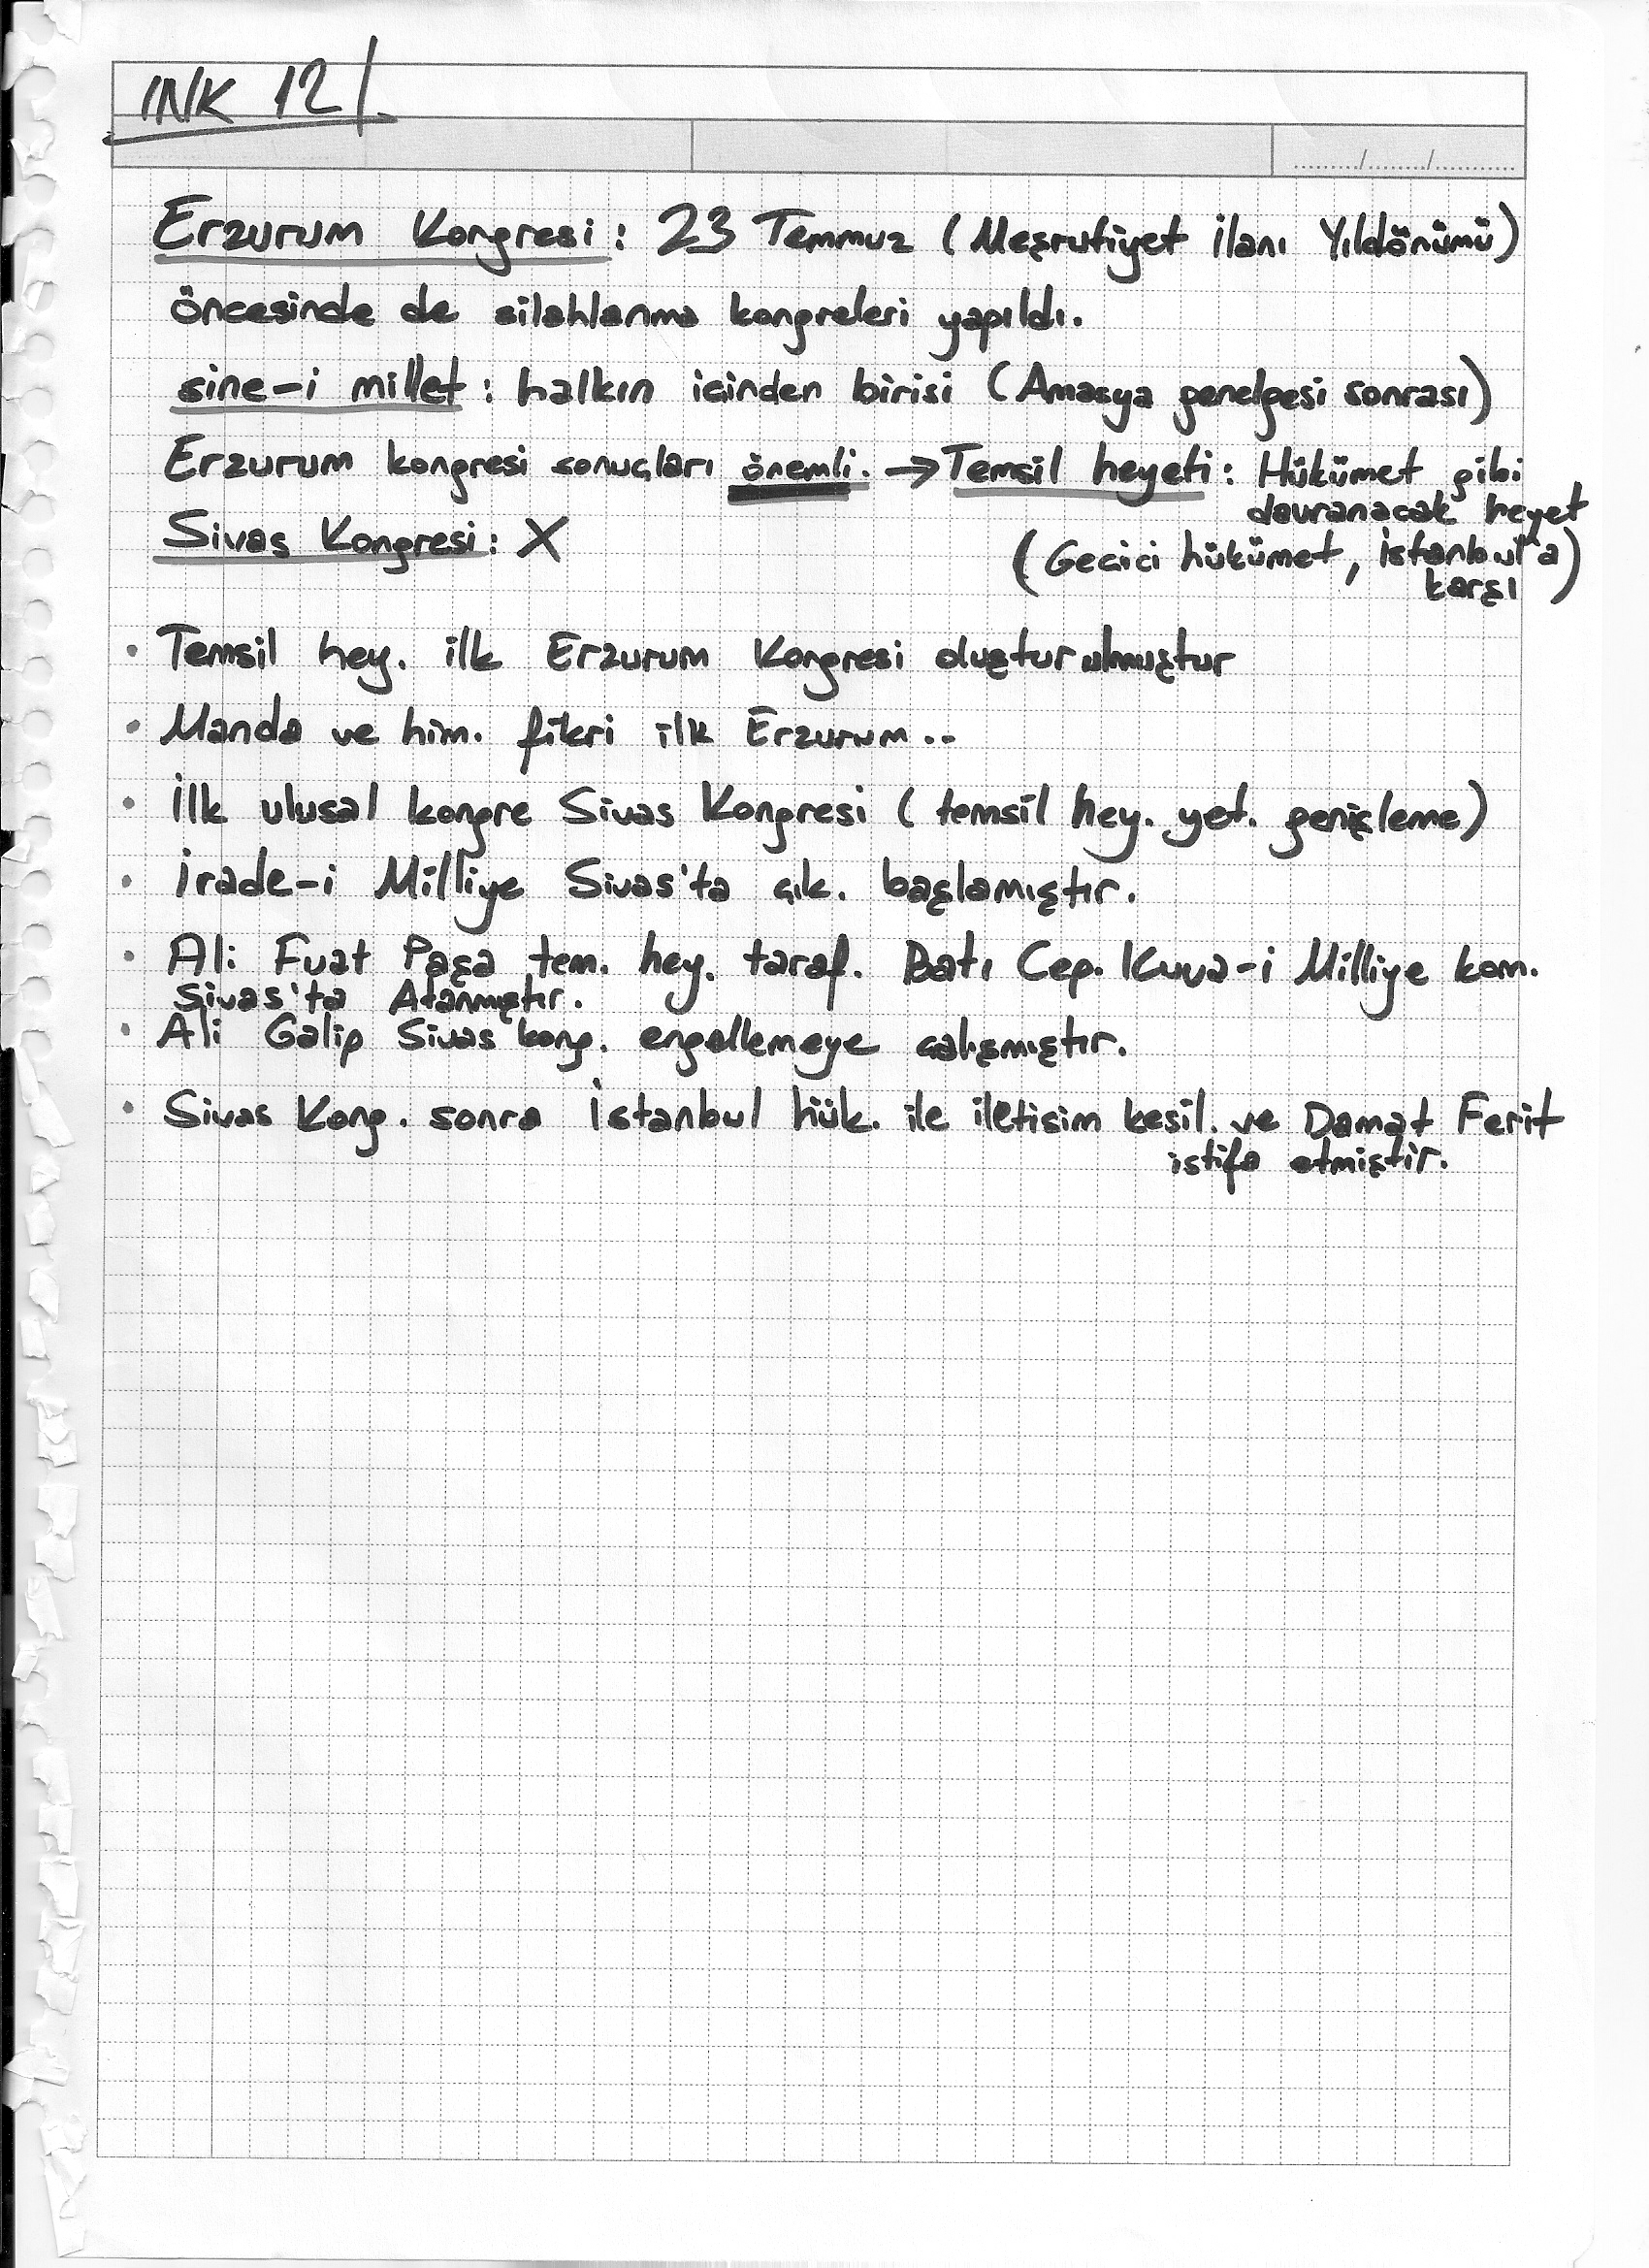 INK 121
Erzurum Kongresi: 23 Temmuz (Meşrutiyet İlanı Yıldönümü)
öncesinde de silahlanma kongreleri yapıldı.
sine-i millet: halkın içinden birisi (Amasya genelgesi sonrası)
Erzurum kongresi sonuçları önemli. → Temsil heyeti: Hükümet gibi
davranacak heyet
Sivas Kongresi: X
(Gecici hükümet, istanbul'a
karşı)
• Temsil hey. ilk Erzurum Kongresi oluşturulmuştur
• Manda ve him. fikri ilk Erzurum..
• İlk ulusal kongre Sivas Kongresi (temsil hey. yet. genişleme)
• İrade-i Milliye Sivas'ta çık. başlamıştır.
• Ali Fuat Paşa tem. hey. taraf. Batı Cep. Kuva-i Milliye kom.
Sivas'ta Atanmıştır.
• Ali Galip Sivas kong. engellemeye calışmıştır.
• Sivas Kong. sonra İstanbul hük. ile iletisim kesil. ve Damat Ferit
istifa etmiştir.